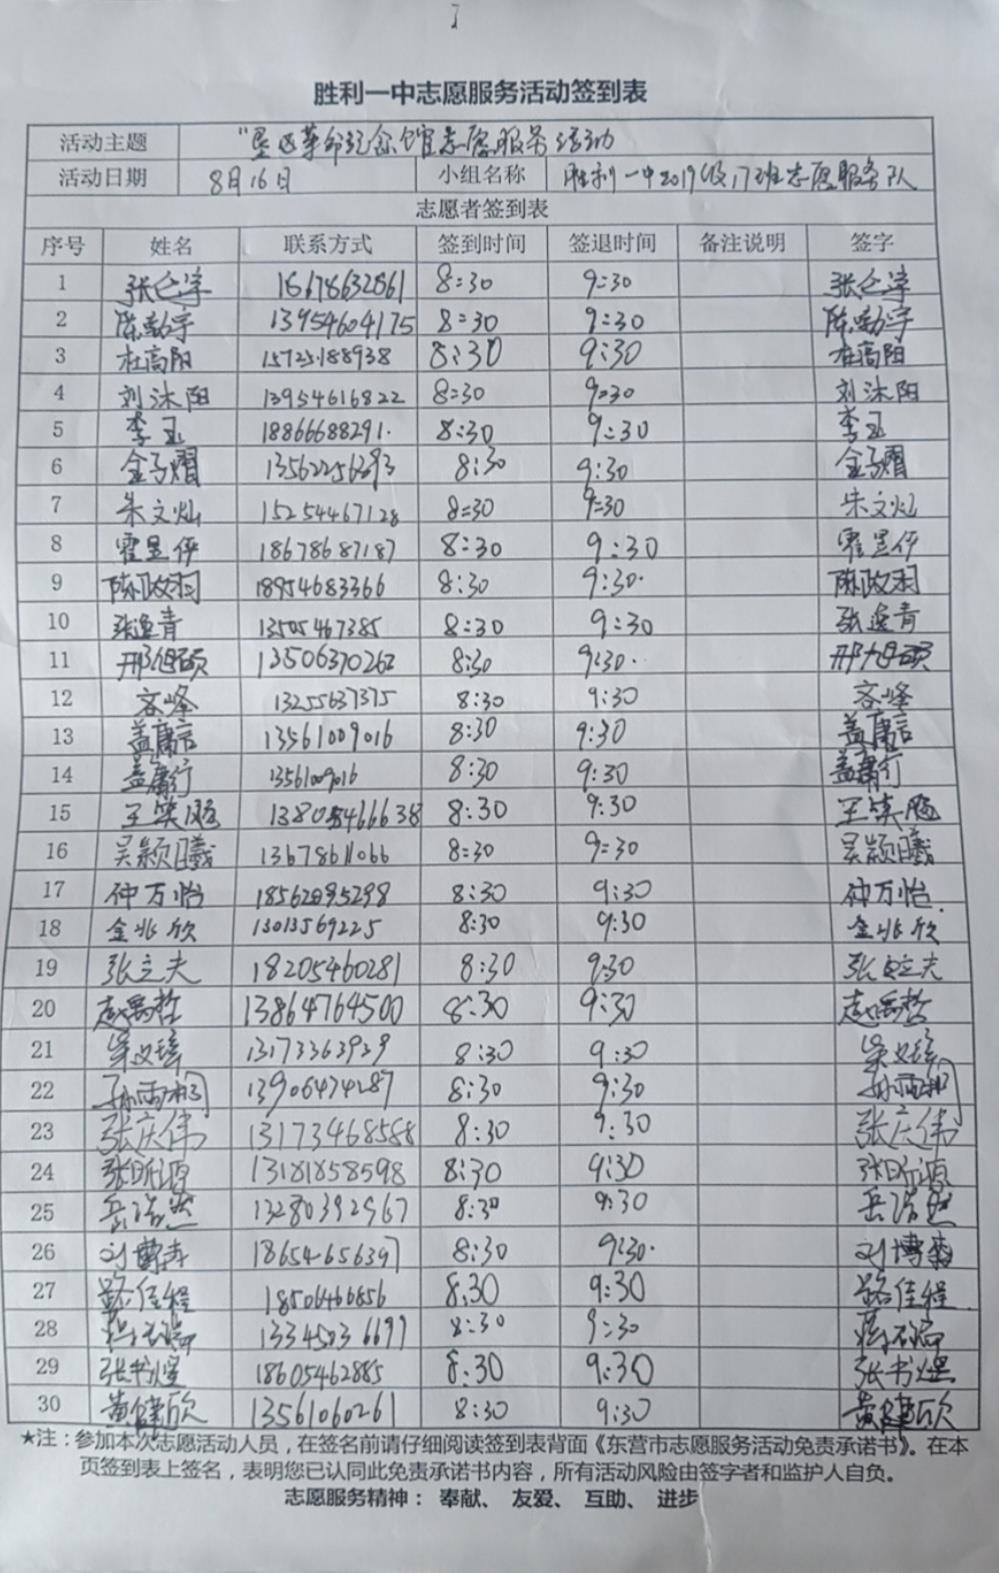 胜利一中志愿服务活动签到表
活动主题 "垦区革命纪念馆志愿服务活动
活动日期 8月16日 小组名称 胜利一中2019级17班志愿服务队
志愿者签到表
序号 姓名 联系方式 签到时间 签退时间 备注说明 签字
1 8:30 9:30
2 陈勋宇 13954604175 8:30 9:30 陈勋宇
3 杜高阳 15725188938 8:30 9:30 杜高阳
4 刘沐阳 13954616822 8:30 9:30 刘沐阳
5 李玉 18866688291. 8:30 9:30 李玉
6 金子熠 8:30 9:30 金子熠
7 朱文灿 15254467128 8:30 9:30 朱文灿
8 霍昱伊 18678687187 8:30 9:30 霍昱伊
9 陈政羽 18954683366 8:30 9:30. 陈政羽
10 张逸青 13505467385 8:30 9:30 张逸青
11 邢旭硕 13506370262 8:30 9:30.. 邢旭硕
12 13255637375 8:30 9:30
13 盖庸言 13561009016 8:30 9:30 盖庸言
14 盖庸行 13561009016 8:30 9:30 盖庸行
15 王笑鹏 8:30 9:30 王笑鹏
16 吴颖曦 13678611066 8:30 9:30 吴颖曦
17 仲万怡 18562095298 8:30 9:30 仲万怡.
18 金兆欣 13013569225 8:30 9:30 金兆欣
19 张立夫 18205460281 8:30 9:30 张立夫
20 赵禹哲 13864764500 8:30 9:30 赵禹哲
21 13173363939 8:30 9:30
22 孙雨桐 13906474287 8:30 9:30 孙雨桐
23 张庆伟 13173468588 8:30 9:30 张庆伟
24 张昕源 13181858598 8:30 9:30 张昕源
25 岳浩然 13280392967 8:30 9:30 岳浩然
26 刘博森 18654656397 8:30 9:30. 刘博森
27 路佳程 18506466856 8:30 9:30 路佳程
28 13345036699 8:30 9:30
29 张书煜 18605462885 8:30 9:30 张书煜
30 黄健欣 13561060261 8:30 9:30 黄健欣
★注：参加本次志愿活动人员，在签名前请仔细阅读签到表背面《东营市志愿服务活动免责承诺书》。在本
页签到表上签名，表明您已认同此免责承诺书内容，所有活动风险由签字者和监护人自负。
志愿服务精神： 奉献、 友爱、 互助、 进步